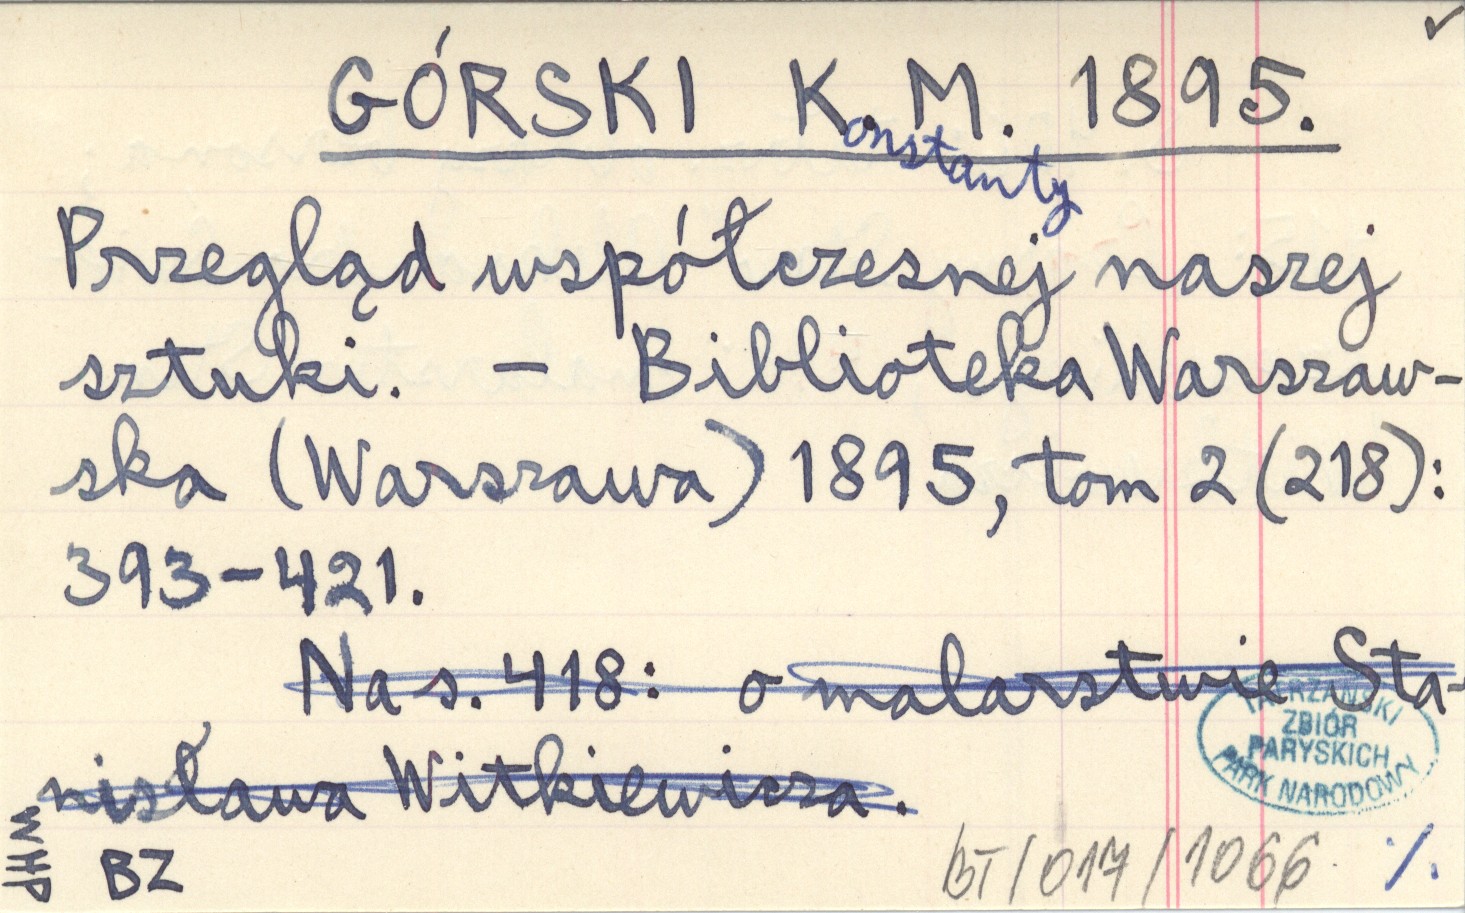 ✓
GÓRSKI K. M. 1895.
onstanty
Przegląd współczesnej naszej
sztuki. – Biblioteka Warszaw-
ska (Warszawa) 1895, tom 2 (218):
393–421.
Na s. 418: o malarstwie Sta-
nisława Witkiewicza.
TATRZAŃSKI
ZBIÓR
PARYSKICH
PARK NARODOWY
WHP
BZ
BT/017/1066 ./.